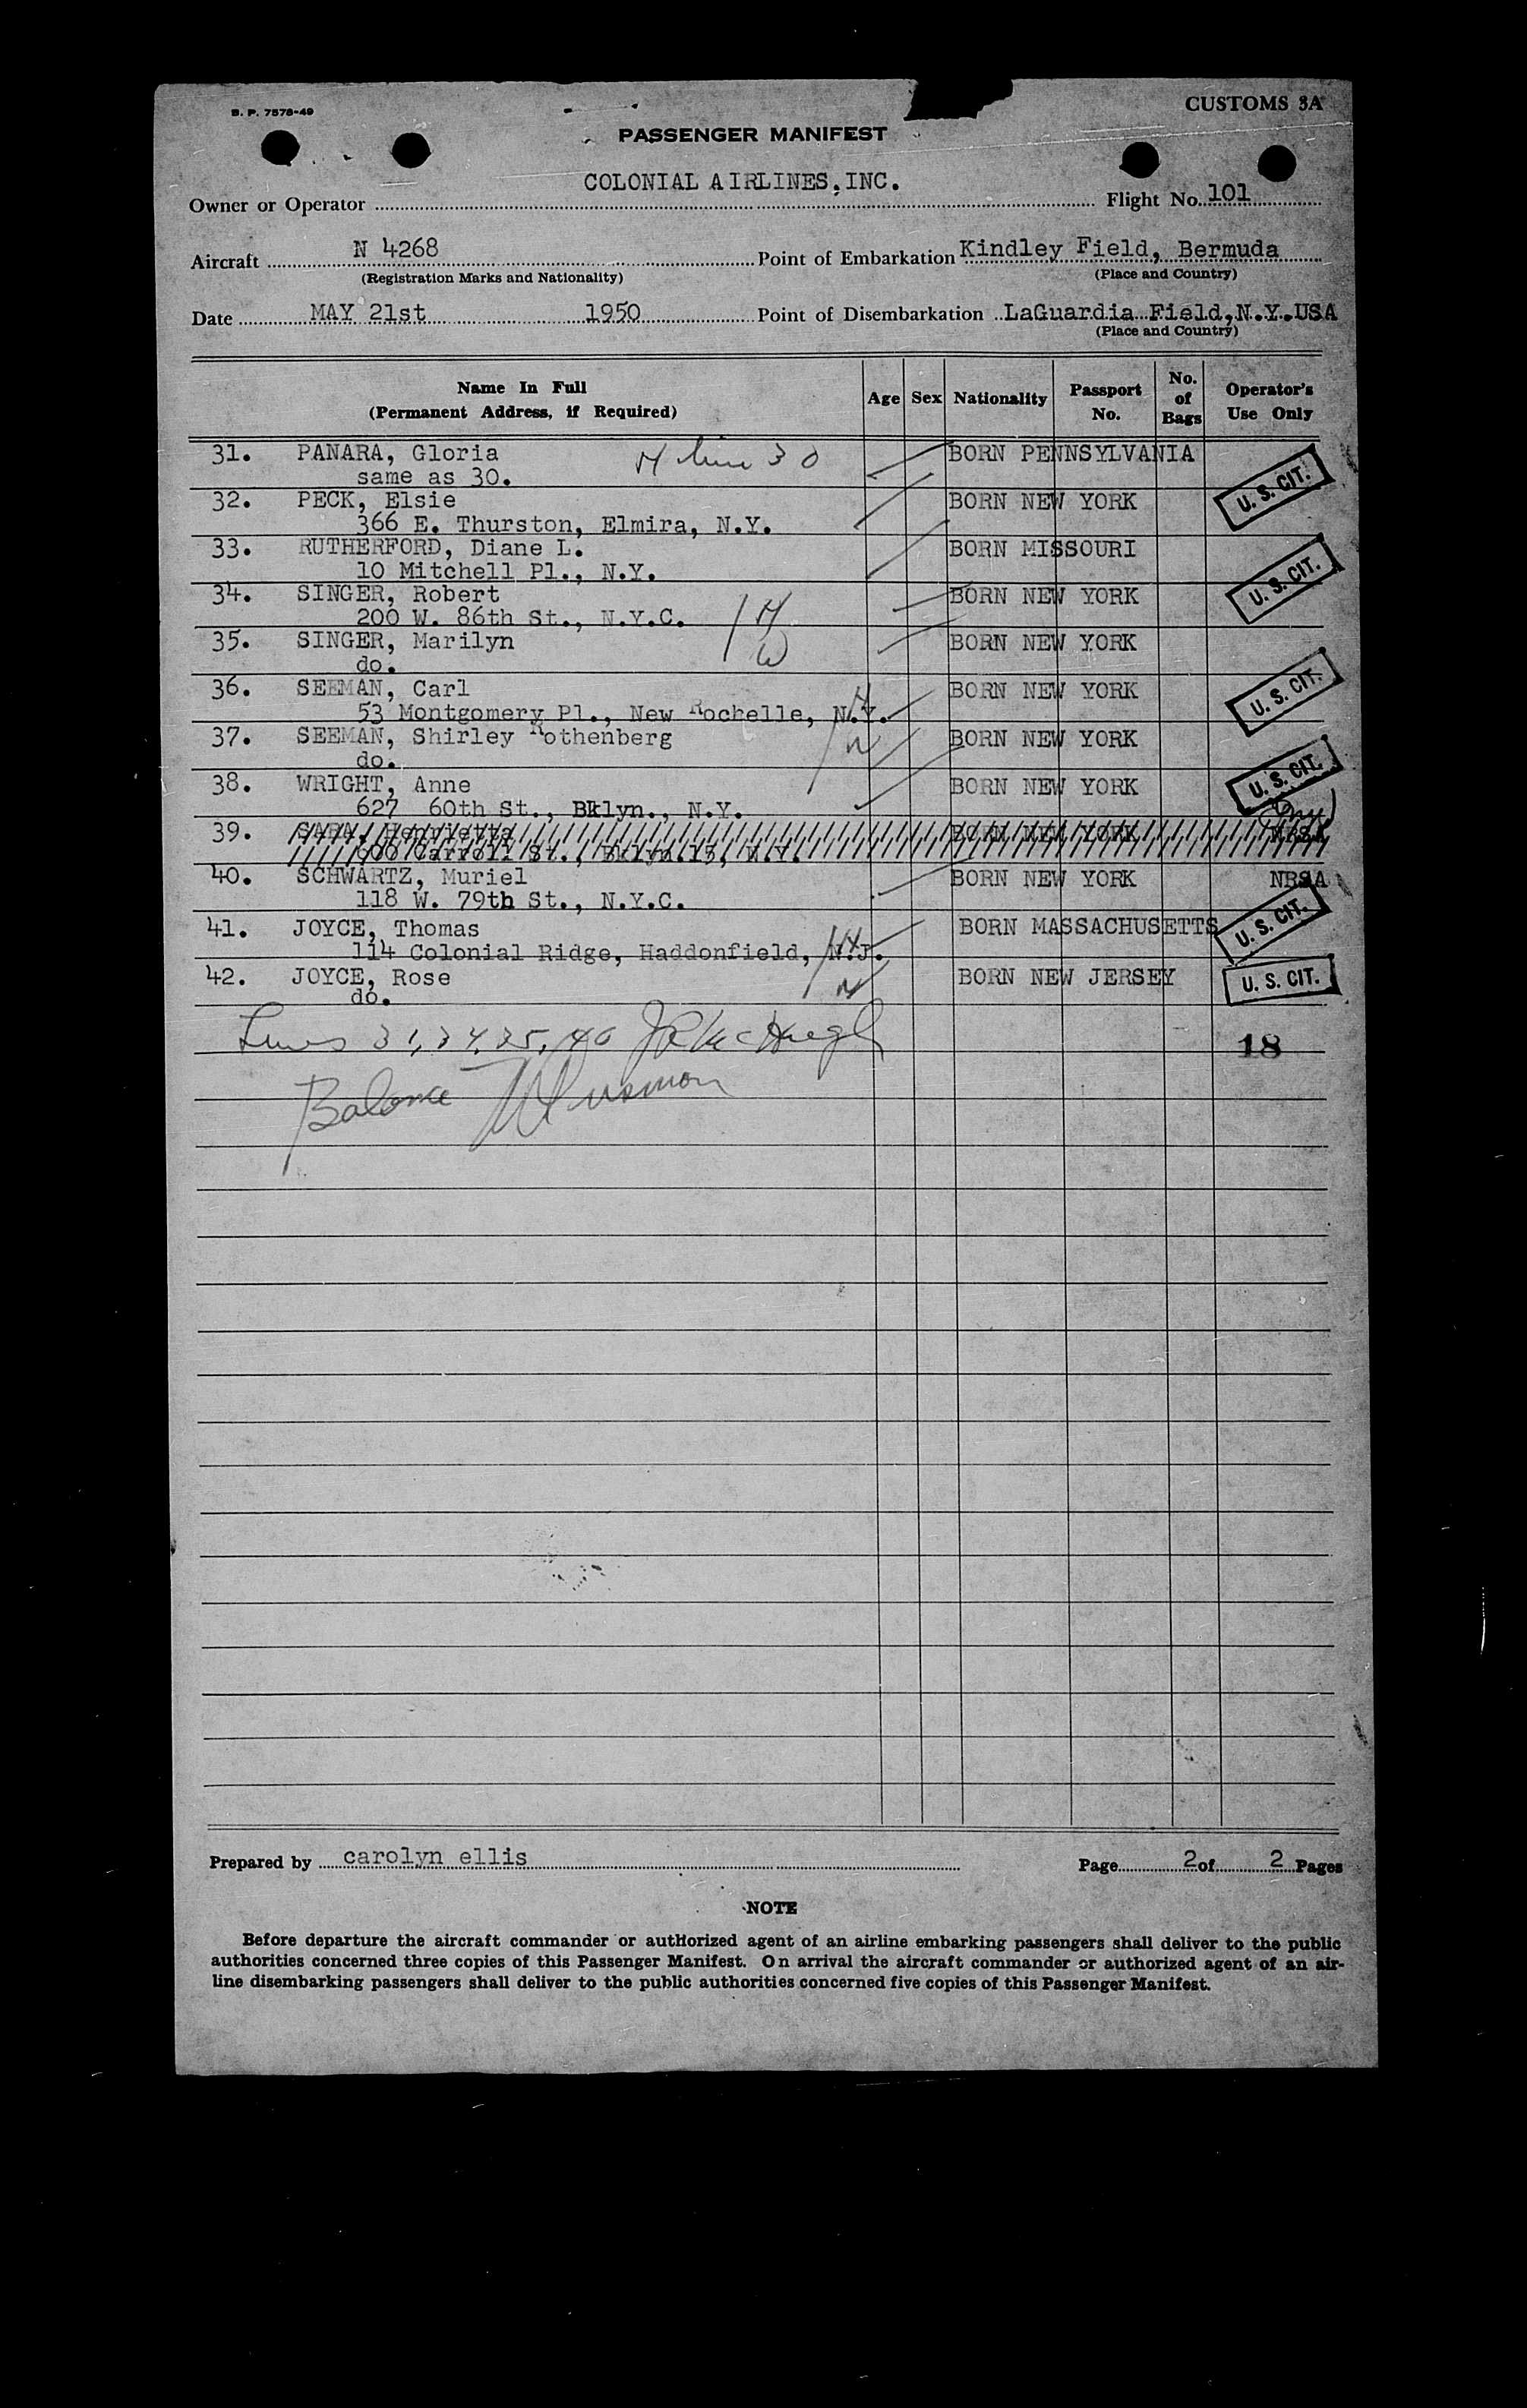 B. P. 7578-49
CUSTOMS 3A
PASSENGER MANIFEST
COLONIAL AIRLINES, INC.
Owner or Operator Flight No. 101
Aircraft N 4268 Point of Embarkation Kindley Field, Bermuda
(Registration Marks and Nationality) (Place and Country)
Date MAY 21st 1950 Point of Disembarkation LaGuardia Field, N.Y. USA
(Place and Country)
Name In Full (Permanent Address, if Required) Age Sex Nationality Passport No. No. of Bags Operator's Use Only
31. PANARA, Gloria H line 30 BORN PENNSYLVANIA
same as 30. U. S. CIT.
32. PECK, Elsie BORN NEW YORK
366 E. Thurston, Elmira, N.Y.
33. RUTHERFORD, Diane L. BORN MISSOURI
10 Mitchell Pl., N.Y. U. S. CIT.
34. SINGER, Robert H BORN NEW YORK
200 W. 86th St., N.Y.C.
35. SINGER, Marilyn W BORN NEW YORK
do.
36. SEEMAN, Carl H BORN NEW YORK U. S. CIT.
53 Montgomery Pl., New Rochelle, N.Y.
37. SEEMAN, Shirley Rothenberg W BORN NEW YORK
do. U. S. CIT.
38. WRIGHT, Anne BORN NEW YORK
627 60th St., Bklyn., N.Y.
39. Henrietta BORN NEW YORK
Carroll St., Bklyn.13, N.Y.
40. SCHWARTZ, Muriel BORN NEW YORK NBSA
118 W. 79th St., N.Y.C.
41. JOYCE, Thomas BORN MASSACHUSETTS U. S. CIT.
114 Colonial Ridge, Haddonfield, N.J. H
42. JOYCE, Rose W BORN NEW JERSEY U. S. CIT.
do.
Lines 31, 34, 35, 40
18
Balance
Prepared by carolyn ellis Page 2 of 2 Pages
NOTE
Before departure the aircraft commander or authorized agent of an airline embarking passengers shall deliver to the public
authorities concerned three copies of this Passenger Manifest. On arrival the aircraft commander or authorized agent of an air-
line disembarking passengers shall deliver to the public authorities concerned five copies of this Passenger Manifest.